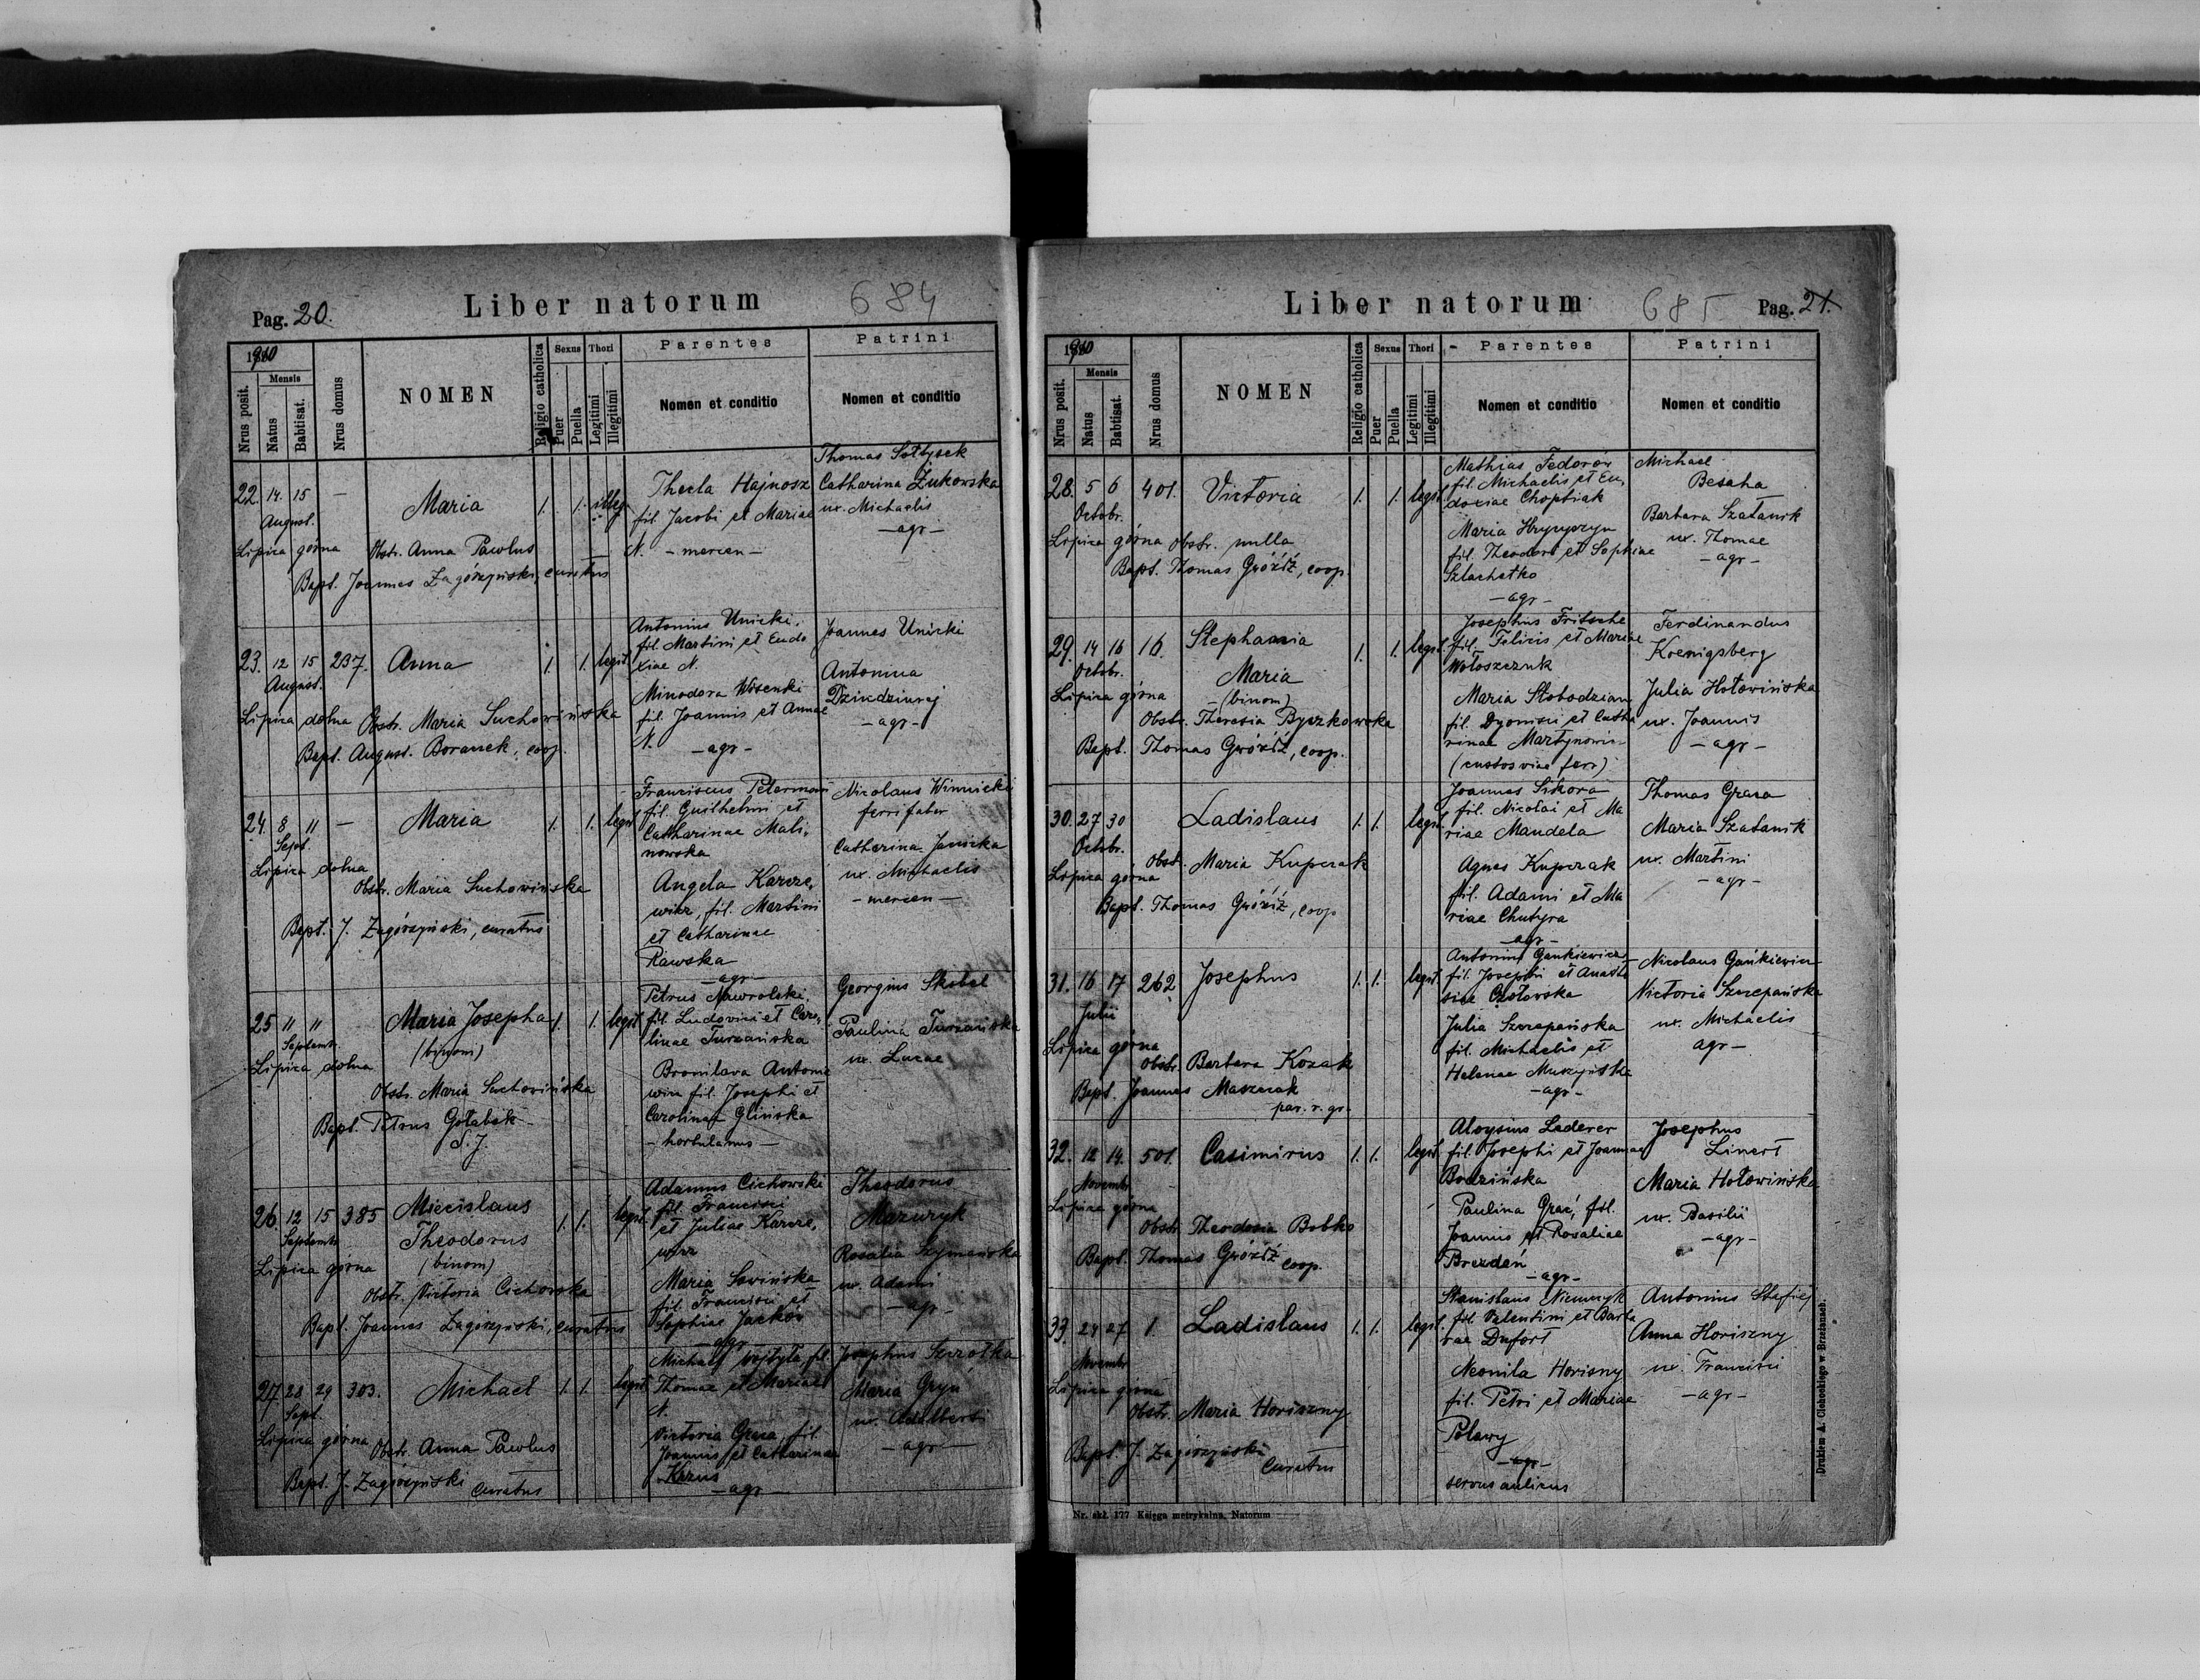 Pag. 20.
Liber natorum
684
1910
Nrus posit.
Mensis
Natus
Babtisat.
Nrus domus
NOMEN
Religio catholica
Sexus
Puer
Puella
Thori
Legitimi
Illegitimi
Parentes
Nomen et conditio
Patrini
Nomen et conditio
22. 14. 15 — Maria 1. 1. illeg.
August.
Lipica górna Obstr. Anna Pawlus
Bapt. Joannes Zagórzyński, curatus
Thecla Hajnosz
fil. Jacobi et Mariae
N. - mercen -
Thomas Sołtysek
Catharina Żukowska
ux. Michaelis
- agr -
23. 12 15 237. Anna 1. 1. legit.
August.
Lipica dolna Obstr. Maria Suchowińska
Bapt. August. Boranek, coop.
Antonius Unicki,
fil. Martini et Eudo
xiae N.
Minodora Wisenki
fil. Joannis et Annae
N. - agr -
Joannes Unicki
Antonina
- agr -
24. 8 11 — Maria 1. 1. legit.
Sept.
Lipica dolna
Obstr. Maria Suchowińska
Bapt. J. Zagórzyński, curatus
Franciscus Petermann
fil. Guilhelmi et
Catharinae Mali-
nowska
Angela Karcze,
wicz, fil. Martini
et Catharinae
Rawska
- agr -
Nicolaus Winnicki
ferri faber
Catharina Janicka
ux. Michaelis
- mercen -
25 11 11 Maria Josepha 1. 1. legit.
Septembr. (binom)
Lipica dolna
Obstr. Maria Suchowińska
Bapt. Petrus Gołąbek
S. J.
Petrus Nawrolski,
fil. Ludovici et Caro,
linae Turzańska
Bronilava Antono
wicz fil. Josephi et
Carolinae Glińska
- hortulanus -
Georgius Skibel
Paulina Turzańska
ux. Lucae
26. 12 15 385 Miecislaus 1. 1. legit.
Septembr. Theodorus
Lipica górna (binom)
Obstr. Victoria Cichowska
Bapt. Joannes Zagórzyński, curatus
Adamus Cichowski
fil. Francisci
et Juliae Karcze,
wicz
Maria Sawińska
fil. Francisci et
Sophiae Jacków
- agr -
Theodorus
Mazuryk
Rosalia Szymańska
ux. Adami
- agr -
27. 28 29 303. Michael 1. 1. legit.
Sept.
Lipica górna Obstr. Anna Pawlus
Bapt. J. Zagórzyński curatus
Michael Wojtyła fil.
Thomae et Mariae
N.
Victoria Graca, fil.
Joannis et Catharinae
- agr -
Josephus Szczotka
Maria Gryń
ux. Adalberti
- agr -
Liber natorum
685
Pag. 21.
1910
Nrus posit.
Mensis
Natus
Babtisat.
Nrus domus
NOMEN
Religio catholica
Sexus
Puer
Puella
Thori
Legitimi
Illegitimi
Parentes
Nomen et conditio
Patrini
Nomen et conditio
28. 5 6 401. Victoria 1. 1. legit.
Octobr.
Lipica górna Obstr. nulla
Bapt. Thomas Gwóźdź, coop.
Mathias Fedorów
fil. Michaelis et Eu,
doxiae Choptiak
Maria Hrynczyn
fil. Theodori et Sophiae
Szlachetko
- agr -
Michael
Besaha
Barbara Szatanik
ux. Thomae
- agr -
29. 14 16 16. Stephania 1. 1. legit.
Octobr. Maria
Lipica górna (binom)
Obstr. Theresia Byczkowska
Bapt. Thomas Gwóźdź, coop.
Josephus Fritsche
fil. Felicis et Mariae
Wołoszczuk
Maria Słobodzian
fil. Dyonisii et Catha
rinae Martynowicz
(custos viae ferr)
Ferdinandus
Koenigsberg
Julia Hołowińska
ux. Joannis
- agr -
30. 27 30 Ladislaus 1. 1. legit.
Octobr.
Lipica górna Obstr. Maria Kupczak
Bapt. Thomas Gwóźdź, coop
Joannes Sikora
fil. Nicolai et Ma
riae Mandela
Agnes Kupczak
fil. Adami et Ma
riae Chutyra
- agr -
Thomas Graca
Maria Szatanik
ux. Martini
- agr -
31. 16 17 262 Josephus 1. 1. legit.
Julii
Lipica górna
Obstr. Barbara Kozak
Bapt. Joannes Maszczak
par. r. gr.
Antonius Gańkiewicz
fil. Josephi et Anasta
siae Czołowska
Julia Szczepańska
fil. Michaelis et
Helenae Muszyńska
- agr -
Nicolaus Gańkiewicz
Victoria Szczepańska
ux. Michaelis
agr -
32. 12 14. 501. Casimirus 1. 1. legit.
Novembr.
Lipica górna
Obstr. Theodosia Bobko
Bapt. Thomas Gwóźdź coop.
Aloysius Lederer
fil. Josephi et Joannae
Bodzińska
Paulina Grać, fil.
Joannis et Rosaliae
Brezdeń
- agr -
Josephus
Linert
Maria Hołowińska
ux. Basilii
- agr -
33. 24 27 1. Ladislaus 1. 1. legit.
Novembr.
Lipica górna
Obstr. Maria Horiszny
Bapt. J. Zagórzyński
Curatus
Stanislaus Niemczyk
fil. Valentini et Barba
rae Dufort
Neonila Horisny
fil. Petri et Mariae
Polawy
- agr -
servus aulicus
Antonius Stefiej
Anna Horiszny
ux. Francisci
- agr -
Nr. skł. 177 Księga metrykalna. Natorum
Drukiem A. Cichockiego w Brzeżanach.